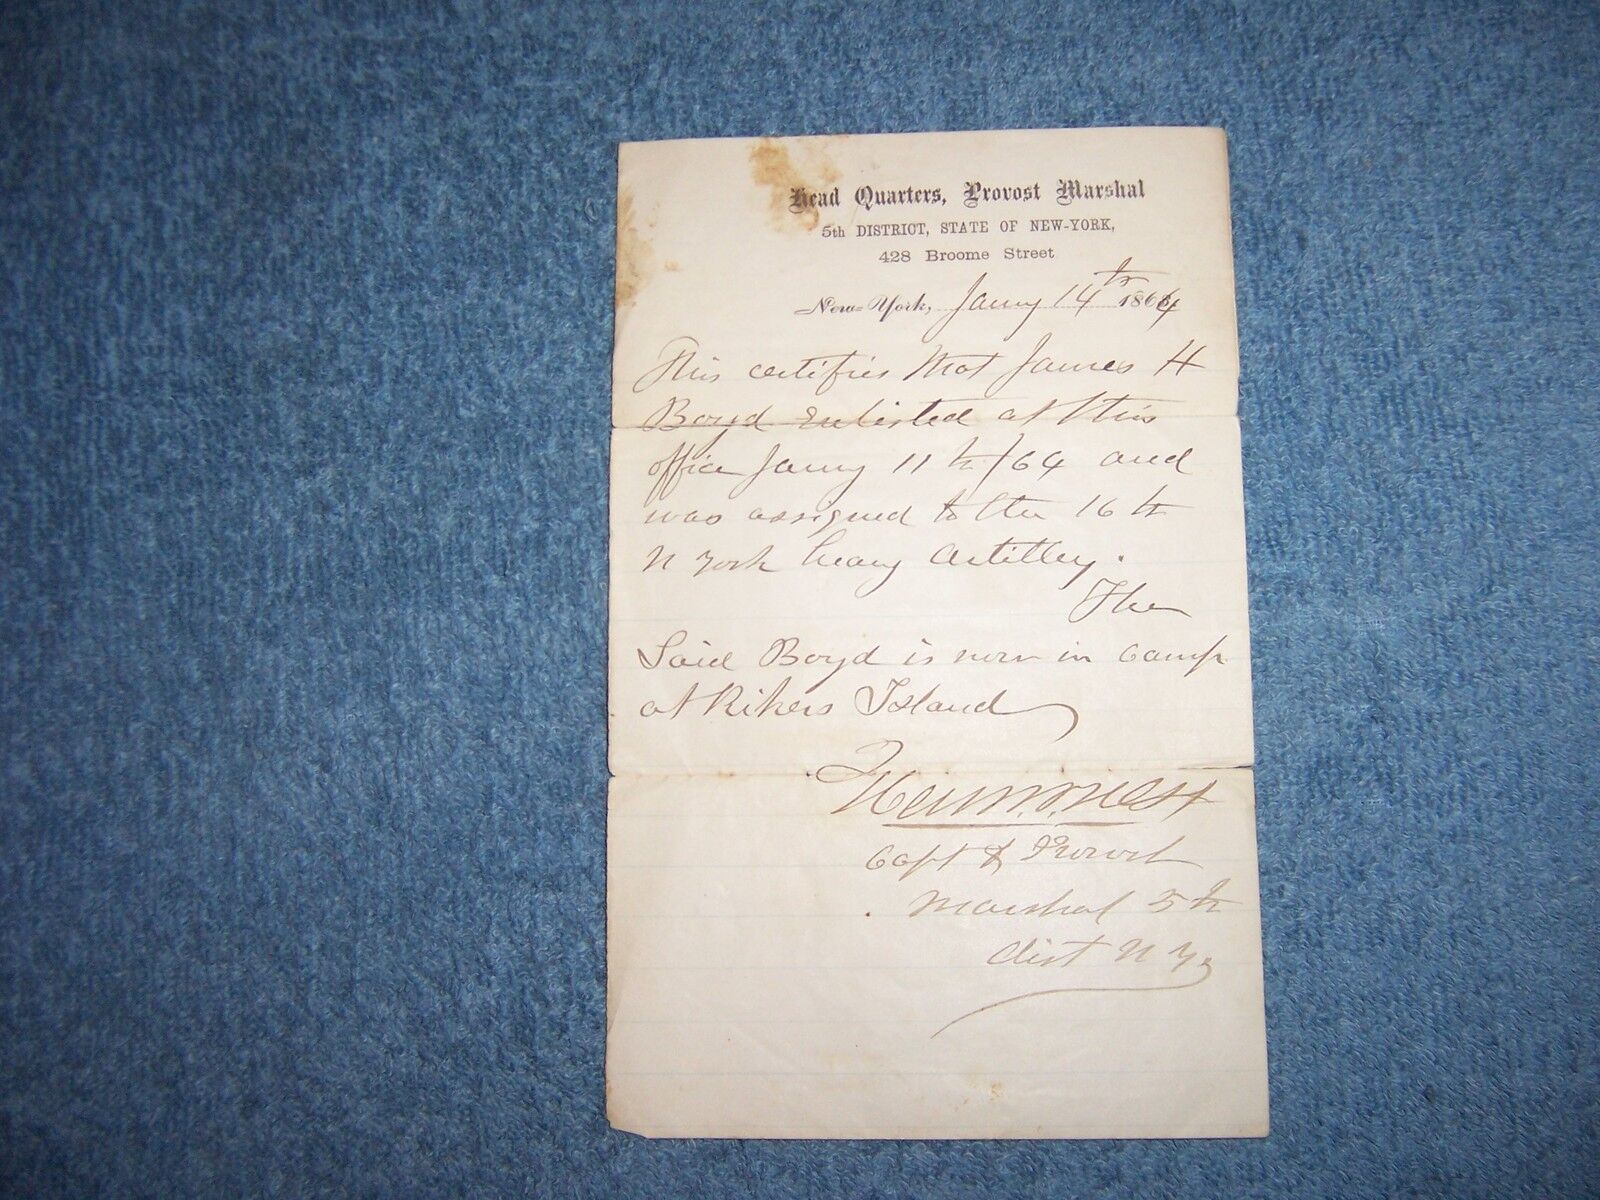 Head Quarters, Provost Marshal
5th DISTRICT, STATE OF NEW-YORK,
428 Broome Street
New-York, Jany 14th 1864
This certifies that James H
Boyd Enlisted at this
office Jany 11th/64 and
was assigned to the 16th
N York heavy Artillery.
The
Said Boyd is now in Camp
at Rikers Island
Capt & Provost
Marshal 5th
dist N Y